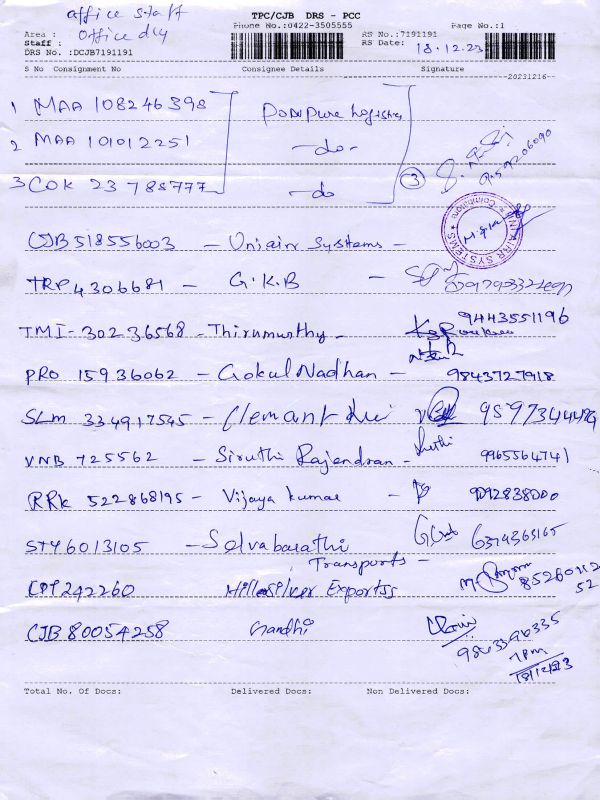 office staff
TPC/CJB DRS - PCC
Phone No.:0422-3505555 Page No.:1
Area : office dly RS No.:7191191
Staff : RS Date: 18.12.23
DRS No. :DCJB7191191
S No Consignment No Consignee Details Signature
20231216
1 MAA 108246398
2 MAA 101012251 -do-
3 COK 23788777 -do 3
CJB 518556003 - Uniair Systems -
TRP 4306681 - G.K.B -
TMI-30236568 - Thirumurthy - 9443551196
PRO 15936062 - Gokul Nadhan - 9843727918
SLM 334917545 - 9597344489
VNB 725562 - Siruthi Rajendran - 9965564741
RRK 522868195 - Vijaya kumar - 9092838000
STY 6013105 - Selvabarathi 6374363165
Transports -
242260 Exports 85260112
52
CJB 80054258 Gandhi 9843396335
7pm
18/12/23
Total No. Of Docs: Delivered Docs: Non Delivered Docs: